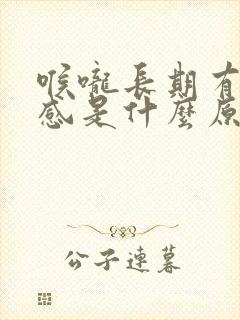 喉嚨長期有
感是什麼原
公子連暮